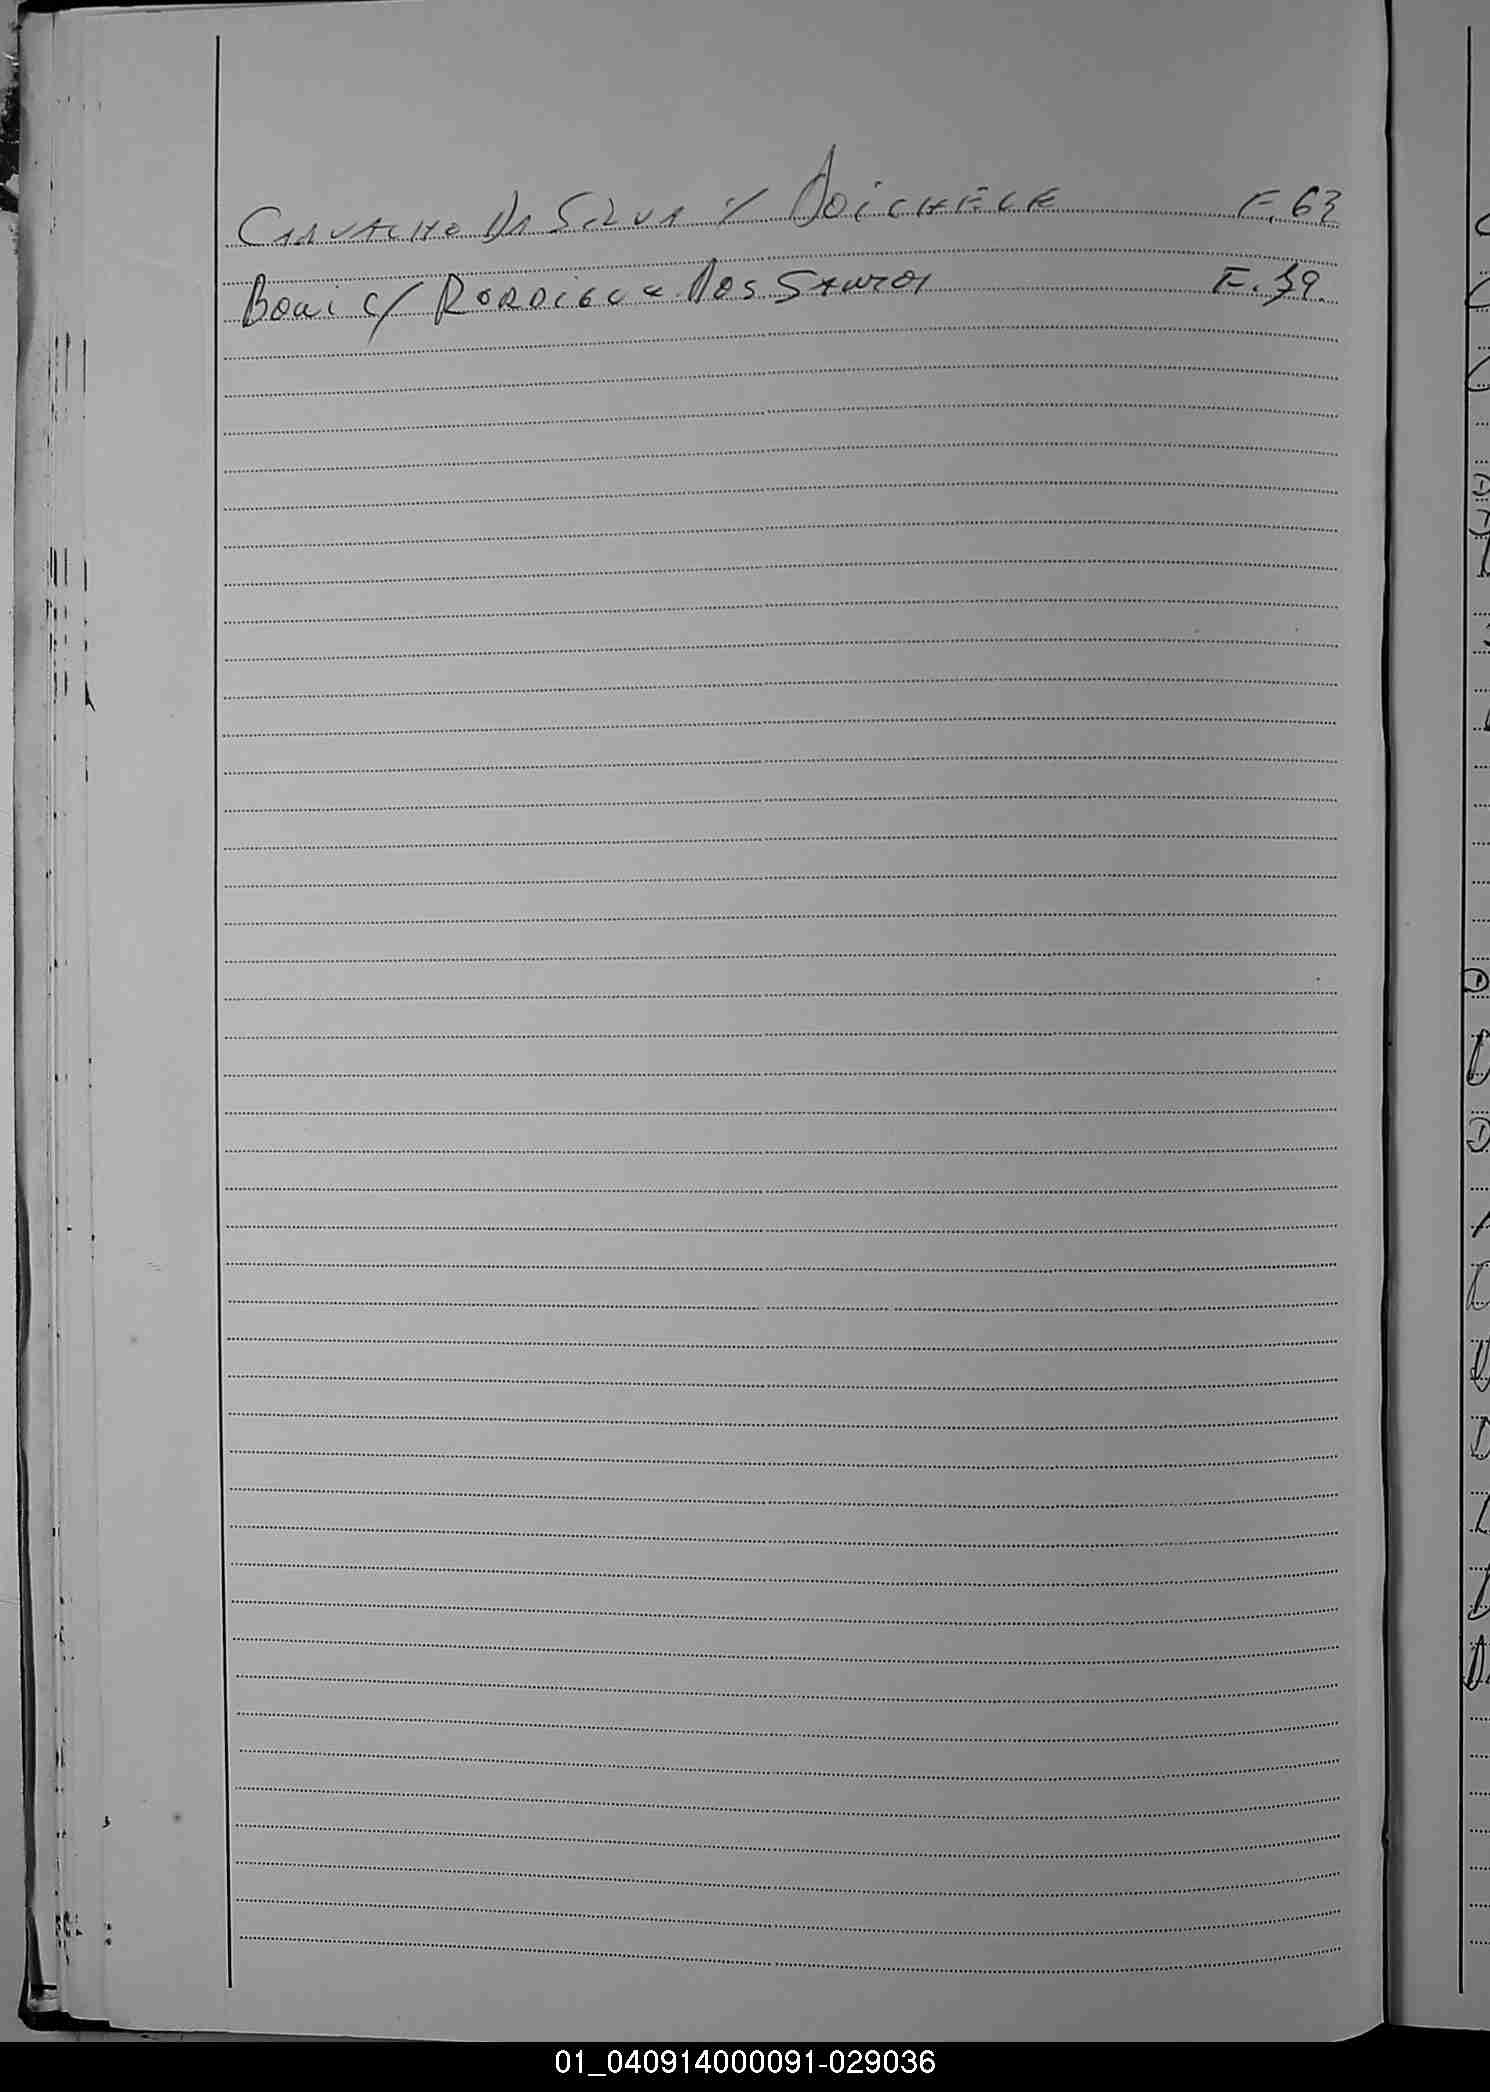 CARVALHO DA SILVA Y DOICHELE F. 63
BONI C/ RORDIGUE DOS SANTOS F. 39.
01_040914000091-029036